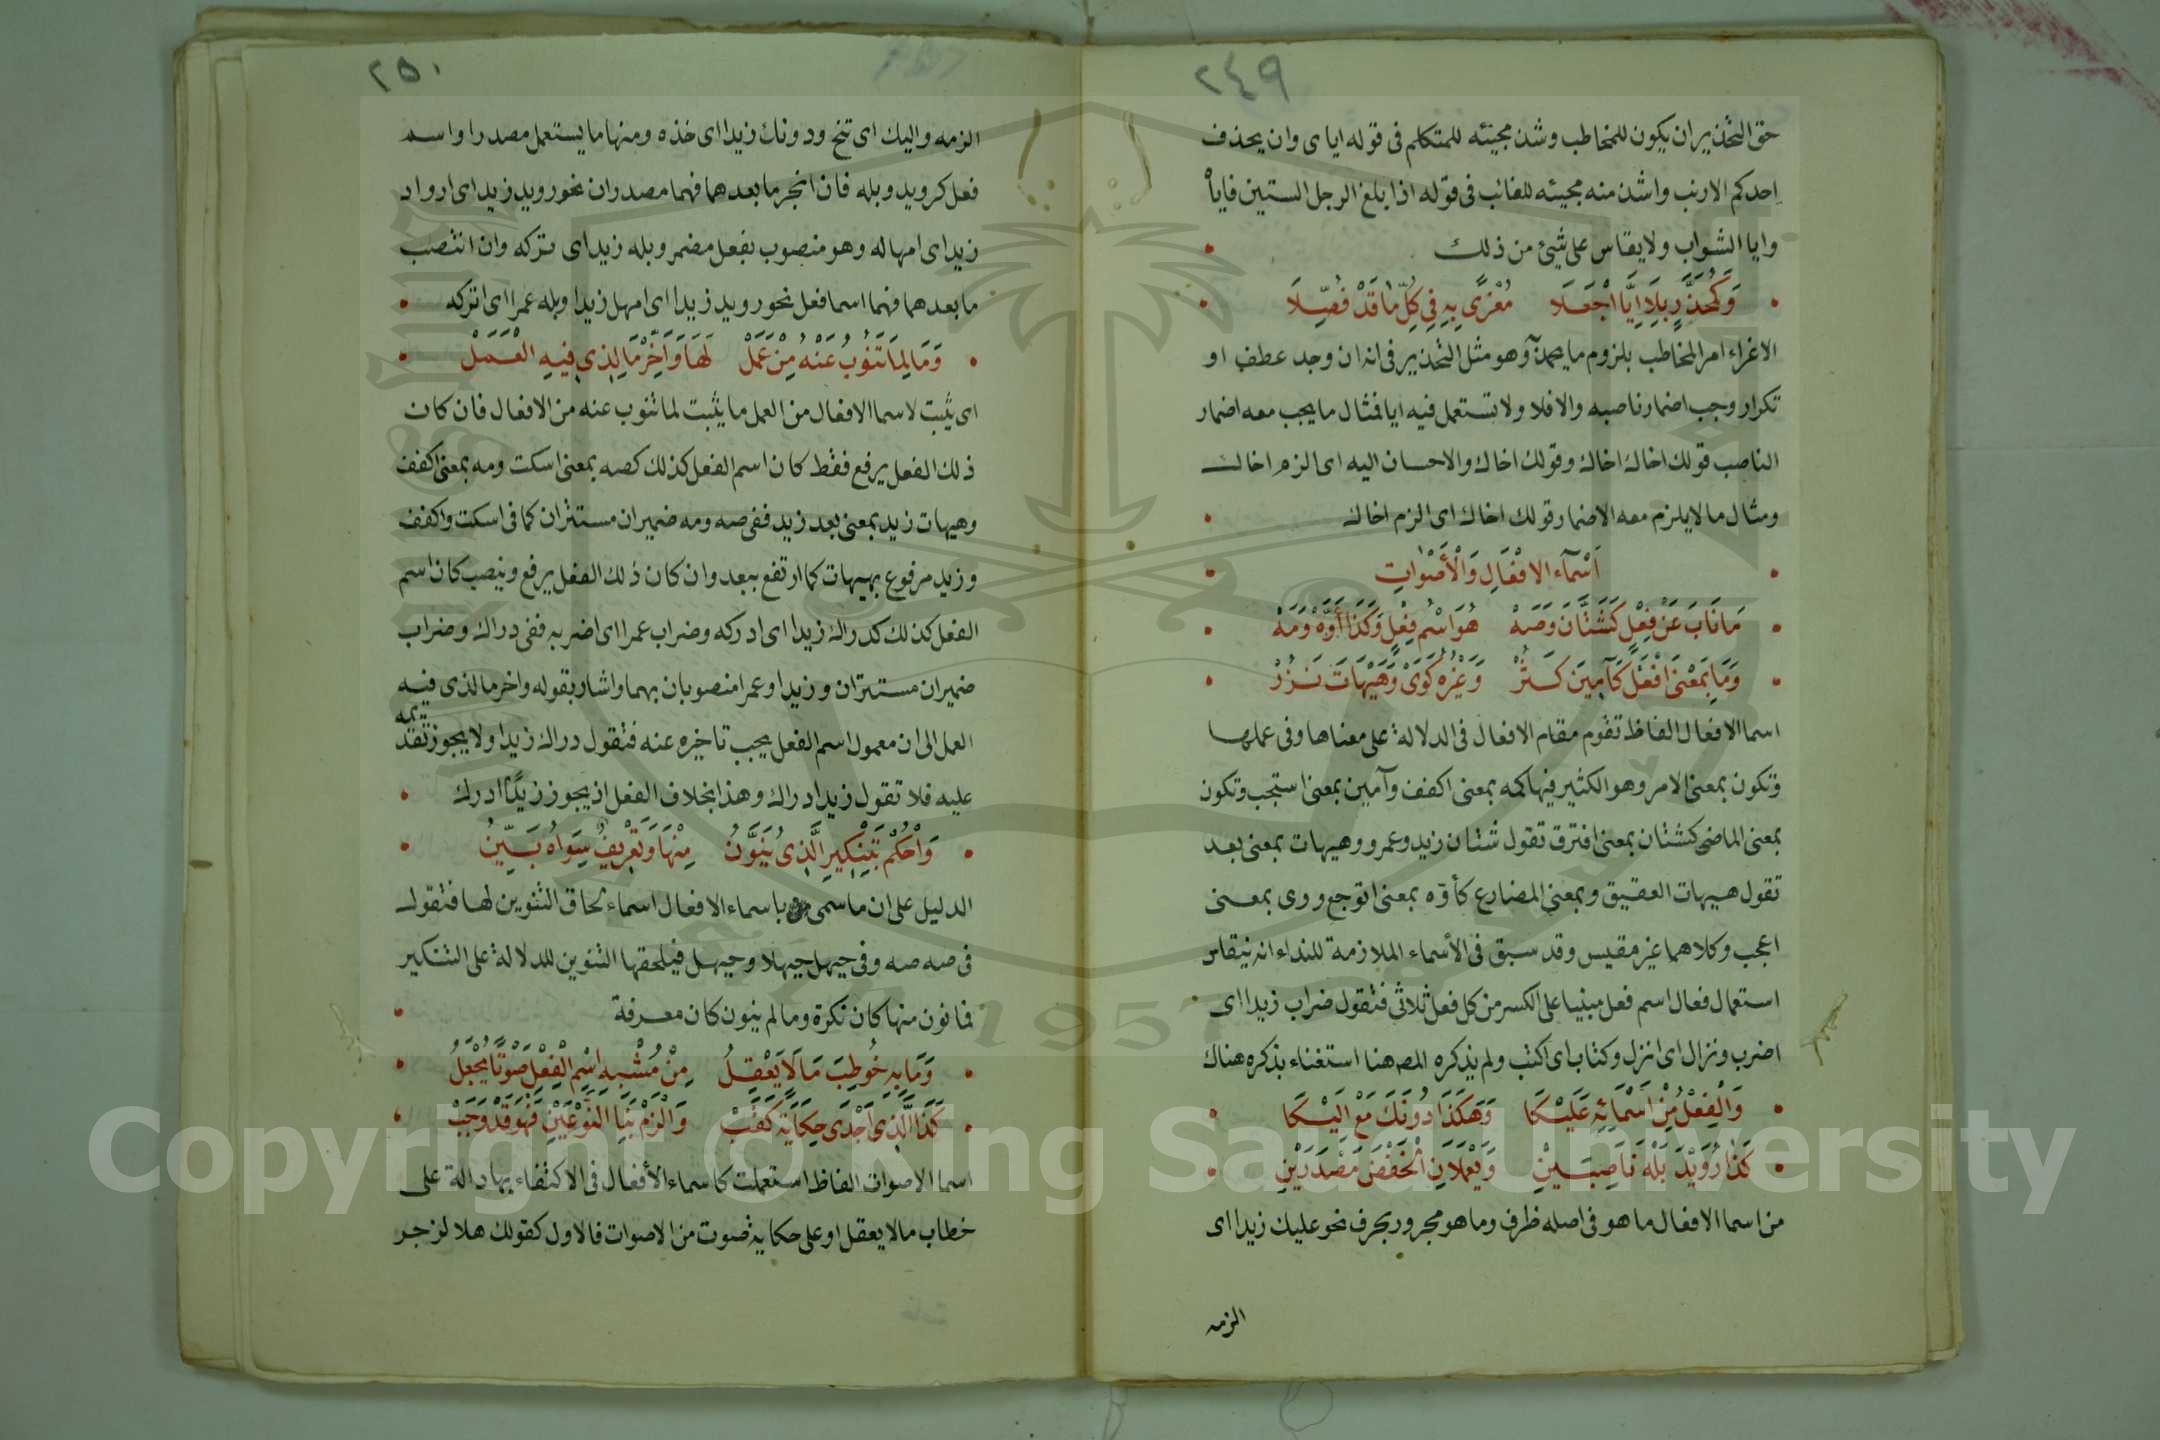 ٢٤٩
حق التحذير ان يكون للمخاطب وشذ مجيئه للمتكلم فى قوله اياى وان يحذف
احدكم الارنب واشذ منه مجيئه للغائب فى قوله اذا بلغ الرجل الستين فاياه
وايا الشواب ولا يقاس على شئ من ذلك
وَكَمُحَذَّرٍ بِلَا اِيَّا اجْعَلَا مُغْرًى بِهِ فِى كُلِّ مَا قَدْ فُصِّلَا
الاغراء امر المخاطب بلزوم ما يحمد وهو مثل التحذير فى انه ان وجد عطف او
تكرار وجب اضمار ناصبه والا فلا ولا تستعمل فيه ايا فمثال ما يجب معه اضمار
الناصب قولك اخاك اخاك وقولك اخاك والاحسان اليه اى الزم اخاك
ومثال ما لا يلزم معه الاضمار قولك اخاك اى الزم اخاك
اَسْمَآء الافْعَالِ وَالْأَصْوَاتِ
مَا نَابَ عَنْ فِعْلٍ كَشَتَّانَ وَصَهْ هُوَ اسْمُ فِعْلٍ وَكَذَا أَوَّهْ وَمَهْ
وَمَا بِمَعْنَى افْعَلْ كَآمِينَ كَثُرْ وَغَيْرُهُ كَوَىْ وَهَيْهَاتَ نَزُرْ
اسما الافعال الفاظ تقوم مقام الافعال فى الدلالة على معناها وفى عملها
وتكون بمعنى الامر وهو الكثير فيها كمه بمعنى اكفف وآمين بمعنى استجب وتكون
بمعنى الماضى كشتان بمعنى افترق تقول شتان زيد وعمرو وهيهات بمعنى بعد
تقول هيهات العقيق وبمعنى المضارع كأوّه بمعنى اتوجع ووى بمعنى
اعجب وكلاهما غير مقيس وقد سبق فى الأسماء الملازمة للنداء انه ينقاس
استعمال فعال اسم فعل مبنيا على الكسر من كل فعل ثلاثى فتقول ضراب زيدا اى
اضرب ونزال اى انزل وكتاب اى اكتب ولم يذكره المص هنا استغناء بذكره هناك
وَالْفِعْلُ مِنْ اَسْمَائِهِ عَلَيْكَا وَهَكَذَا دُونَكَ مَعْ اِلَيْكَا
كَذَا رُوَيْدَ بَلْهَ نَاصِبَيْنِ وَيَعْمَلَانِ الْخَفْضَ مَصْدَرَيْنِ
من اسما الافعال ما هو فى اصله ظرف وما هو مجرور بحرف نحو عليك زيدا اى
الزمه
٢٥٠
الزمه واليك اى تنح ودونك زيدا اى خذه ومنها ما يستعمل مصدرا واسم
فعل كرويد وبله فان انجر ما بعدهما فهما مصدران نحو رويد زيد اى ارواد
زيد اى امهاله وهو منصوب بفعل مضمر وبله زيد اى تركه وان انتصب
ما بعدهما فهما اسما فعل نحو رويد زيدا اى امهل زيدا وبله عمرا اى اتركه
وَمَا لِمَا تَنُوبُ عَنْهُ مِنْ عَمَلْ لَهَا وَأَخِّرْ مَا لِذِى فِيهِ الْعَمَلْ
اى يثبت لاسما الافعال من العمل ما يثبت لما تنوب عنه من الافعال فان كان
ذلك الفعل يرفع فقط كان اسم الفعل كذلك كصه بمعنى اسكت ومه بمعنى اكفف
وهيهات زيد بمعنى بعد زيد ففى صه ومه ضميران مستتران كما فى اسكت واكفف
وزيد مرفوع بهيهات كما ارتفع ببعد وان كان ذلك الفعل يرفع وينصب كان اسم
الفعل كذلك كدراك زيدا اى ادركه وضراب عمرا اى اضربه ففى دراك وضراب
ضميران مستتران وزيدا وعمرا منصوبان بهما واشار بقوله واخر ما لذى فيه
العمل الى ان معمول اسم الفعل يجب تاخيره عنه فتقول دراك زيدا ولا يجوز تقديمه
عليه فلا تقول زيدا دراك وهذا بخلاف الفعل اذ يجوز زيدًا ادرك
وَاحْكُمْ بِتَنْكِيرِ الَّذِى يُنَوَّنُ مِنْهَا وَتَعْرِيفُ سِوَاهُ بَيِّنُ
الدليل على ان ما سمى باسماء الافعال اسماء لحاق التنوين لها فتقول
فى صه صه وفى حيهل حيهلا وحيهل فيلحقها التنوين للدلالة على التنكير
فما نون منها كان نكرة وما لم ينون كان معرفة
وَمَا بِهِ خُوطِبَ مَا لَا يَعْقِلُ مِنْ مُشْبِهِ اسْمِ الْفِعْلِ صَوْتًا يُجْعَلُ
كَذَا الَّذِى اَجْدَى حِكَايَةً كَقَبْ وَالْزَمْ بِنَا النَّوْعَيْنِ فَهْوَ قَدْ وَجَبْ
اسما الاصوات الفاظ استعملت كاسماء الأفعال فى الاكتفاء بها دالة على
خطاب ما لا يعقل او على حكاية صوت من الاصوات فالاول كقولك هلا لزجر
1957
Copyright © King Saud University